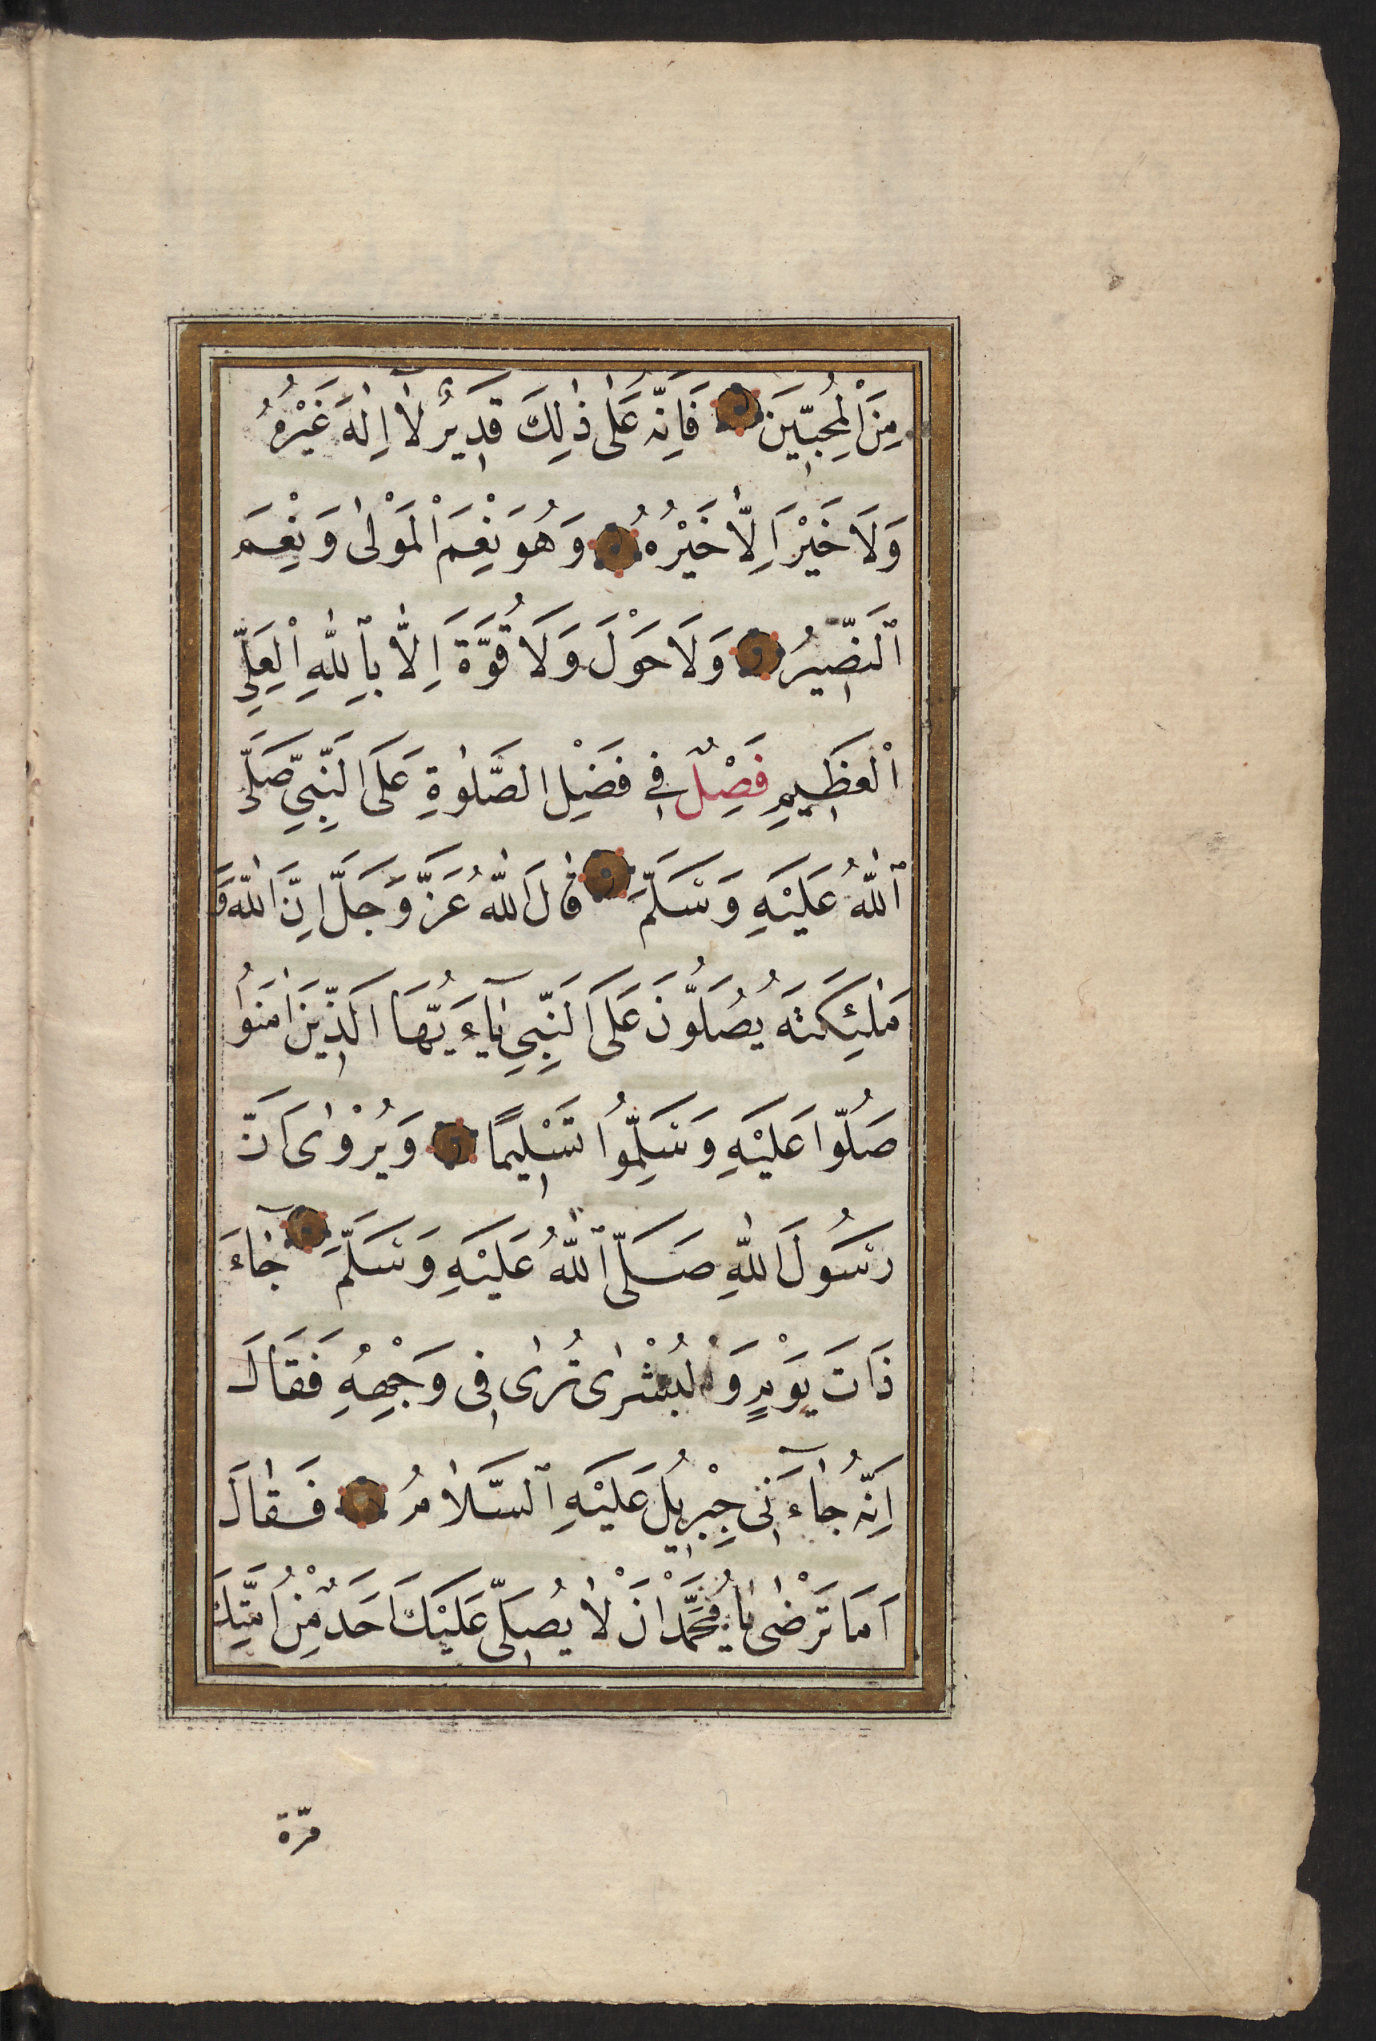 مِنَ الْمُحِبِّينَ فَاِنَّهُ عَلٰى ذٰلِكَ قَدِيرٌ لَآ اِلٰهَ غَيْرُهُ
وَلَا خَيْرَ اِلَّا خَيْرُهُ وَهُوَ نِعْمَ الْمَوْلٰى وَنِعْمَ
ٱلنَّصِيرُ وَلَا حَوْلَ وَلَا قُوَّةَ اِلَّا بِٱللّٰهِ الْعَلِيِّ
الْعَظِيمِ فَصْلٌ فِى فَضْلِ الصَّلٰوةِ عَلَى النَّبِيِّ صَلَّى
ٱللّٰهُ عَلَيْهِ وَسَلَّمَ قَالَ اللّٰهُ عَزَّ وَجَلَّ اِنَّ اللّٰهَ وَ
مَلٰئِكَتَهُ يُصَلُّونَ عَلَى النَّبِيِّ يٰآءَيُّهَا الَّذِينَ اٰمَنُوا
صَلُّوا عَلَيْهِ وَسَلِّمُوا تَسْلِيمًا وَيُرْوٰى اَنَّ
رَسُولَ اللّٰهِ صَلَّى ٱللّٰهُ عَلَيْهِ وَسَلَّمَ جَآءَ
ذَاتَ يَوْمٍ وَالْبُشْرٰى تُرٰى فِى وَجْهِهِ فَقَالَ
اِنَّهُ جَآءَنِى جِبْرِيلُ عَلَيْهِ ٱلسَّلَامُ فَقَالَ
اَمَا تَرْضٰى يَا مُحَمَّدُ اَنْ لَا يُصَلِّى عَلَيْكَ اَحَدٌ مِنْ اُمَّتِكَ
مرّة